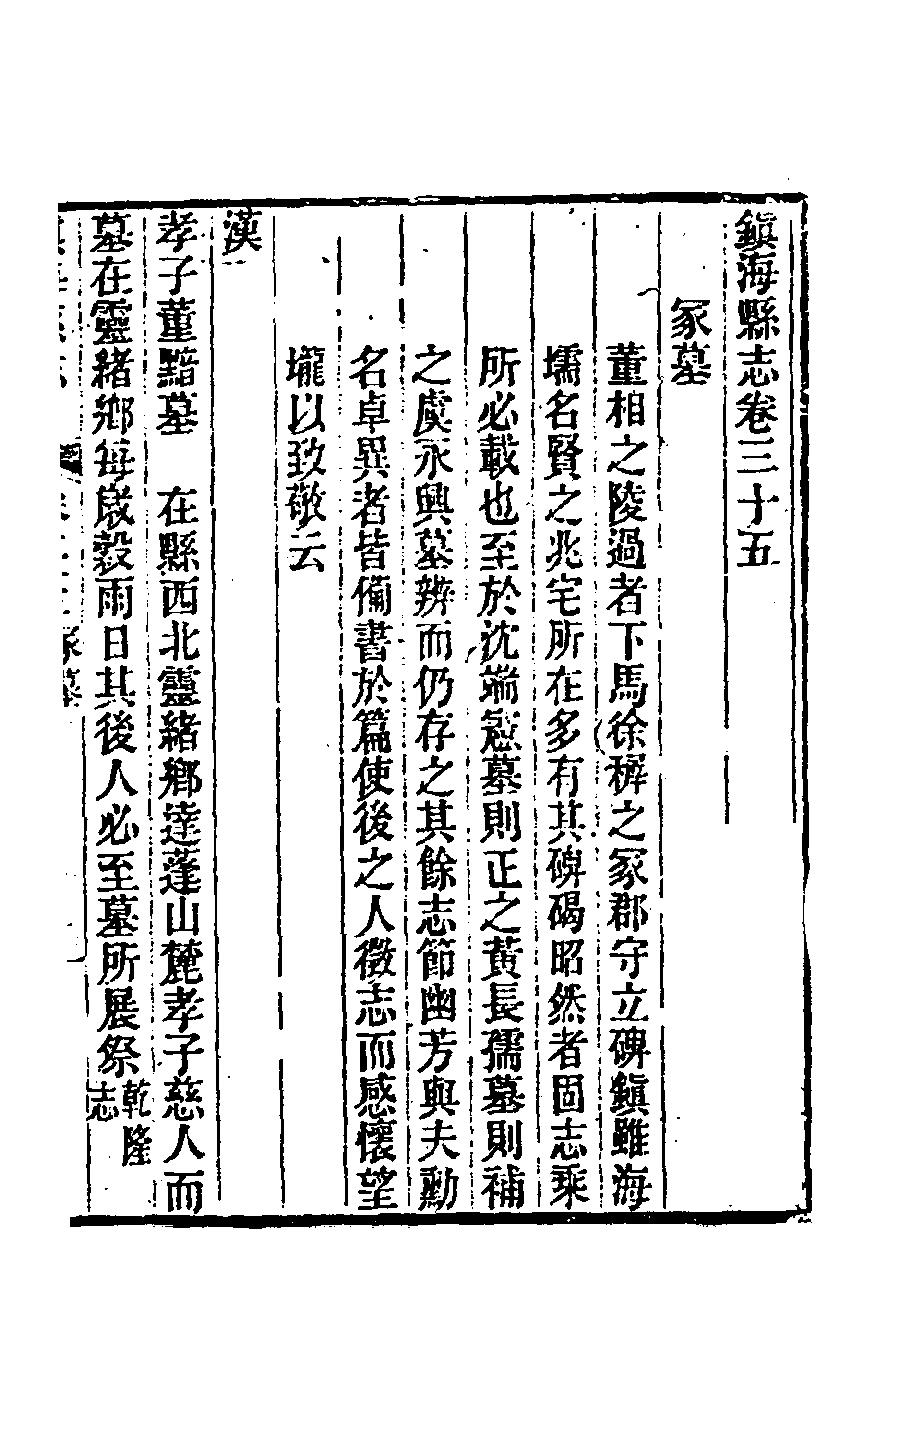 鎭海縣志卷三十五
冢墓
董相之陵過者下馬徐穉之冢郡守立碑鎭雖海
壖名賢之兆宅所在多有其碑碣昭然者固志乘
所必載也至於沈端愨墓則正之黃長孺墓則補
之虞永興墓辨而仍存之其餘志節幽芳與夫勳
名卓異者皆備書於篇使後之人徵志而感懷望
壠以致敬云
漢
孝子董黯墓　在縣西北靈緒鄉達蓬山麓孝子慈人而
墓在靈緒鄉每歲穀雨日其後人必至墓所展祭乾隆
志
冢墓